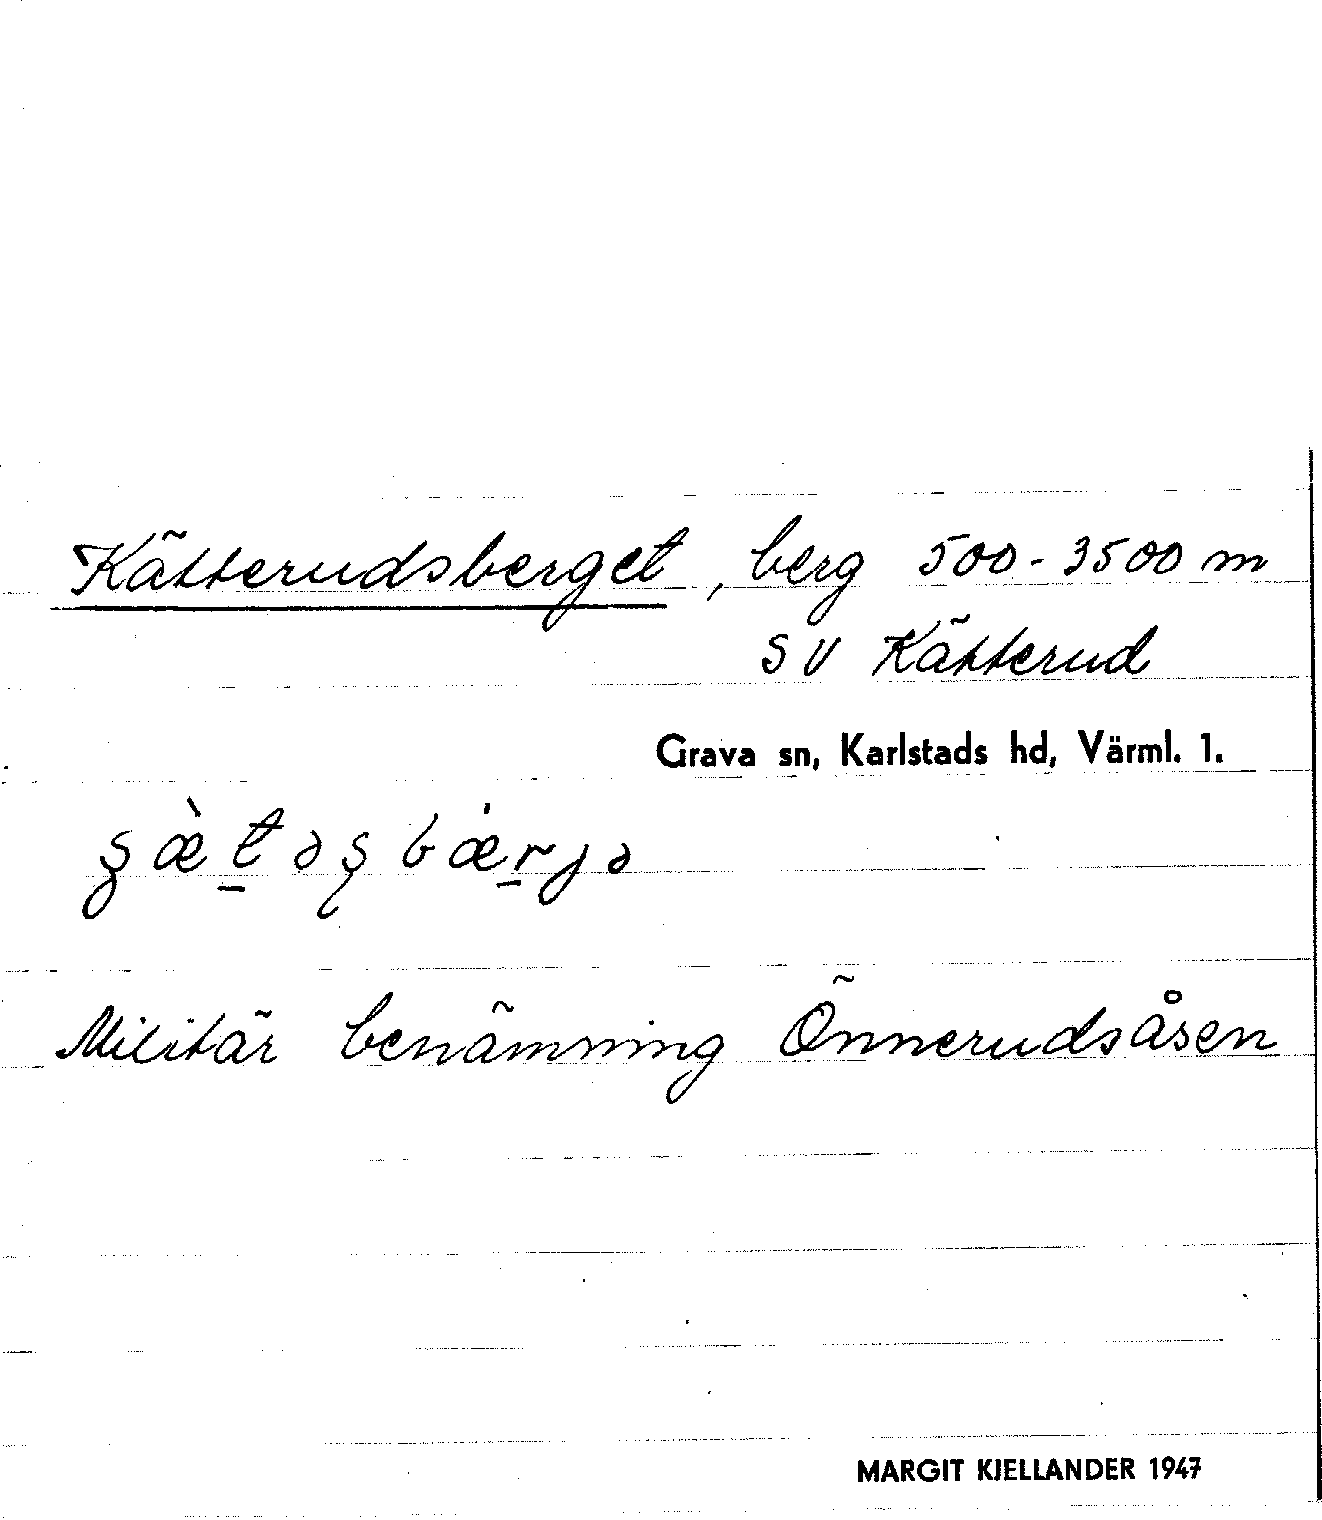 Kätterudsberget, berg 500-3500 m
SV Kätterud
Grava sn, Karlstads hd, Värml. 1.
Militär benämning Önnerudsåsen
MARGIT KJELLANDER 1947